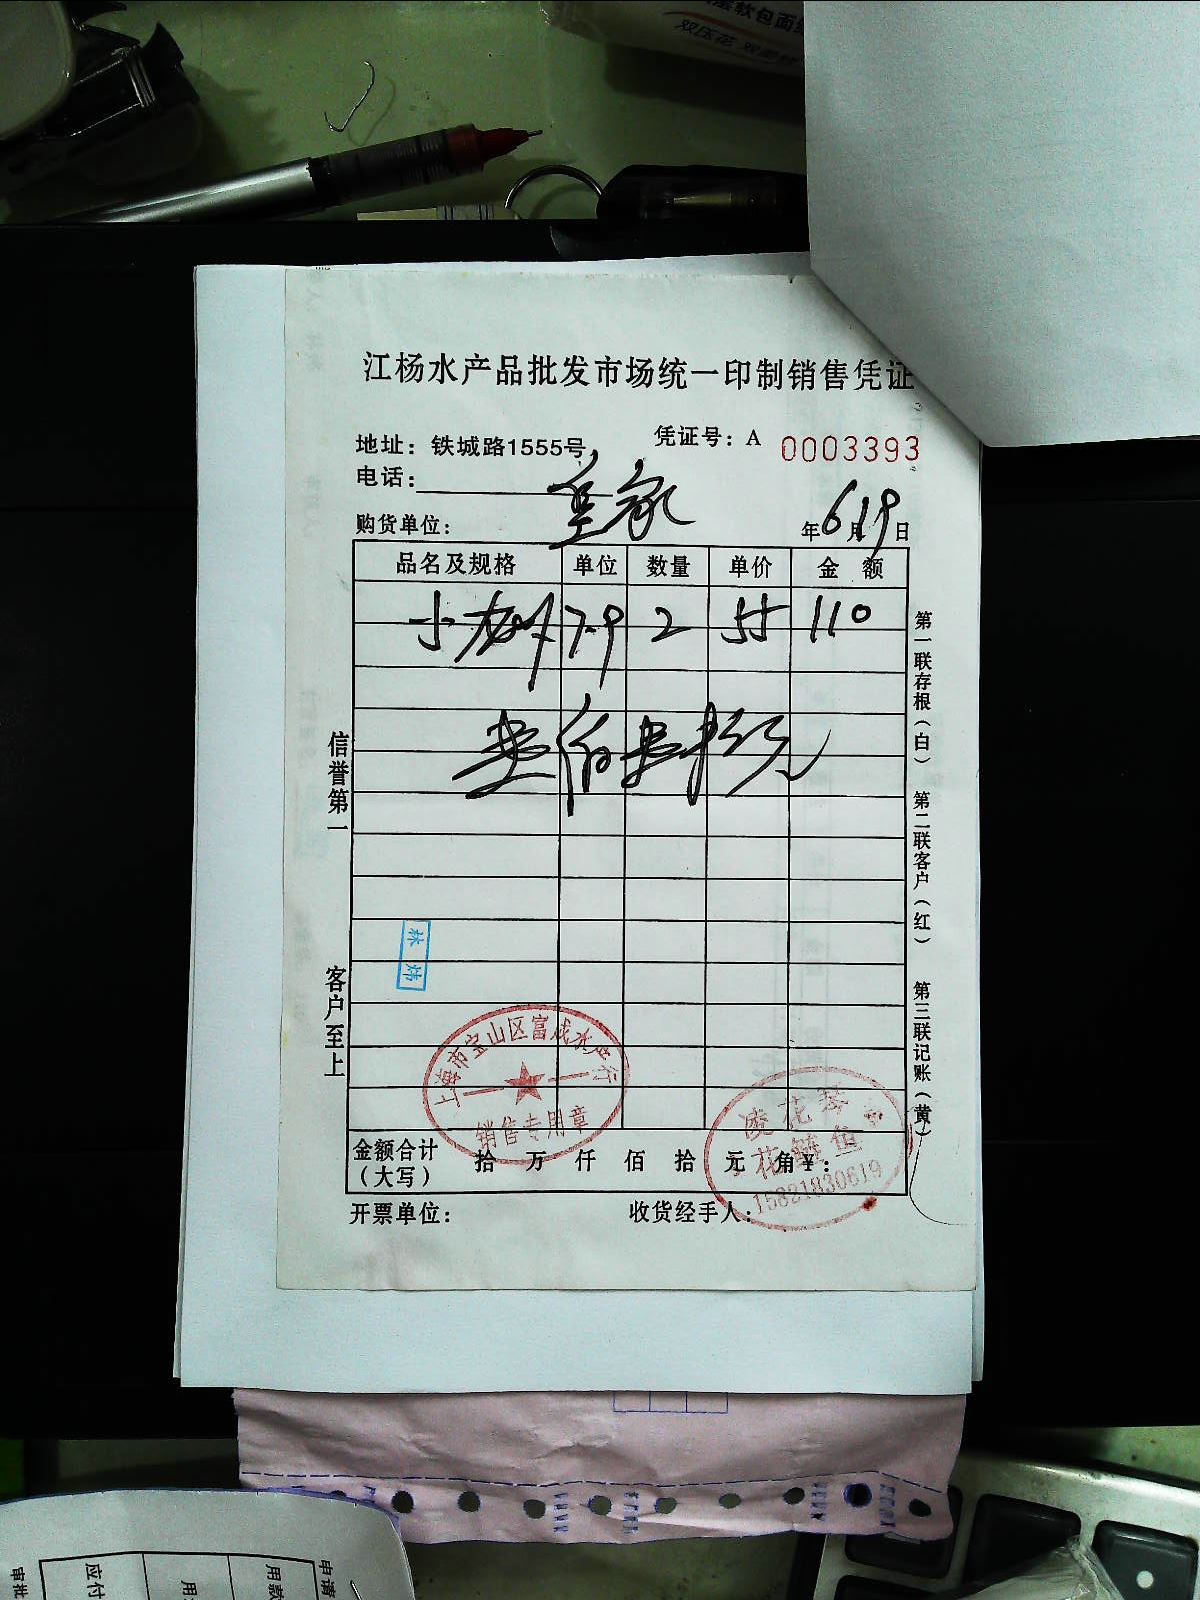 软包面
双压花
江杨水产品批发市场统一印制销售凭证
地址：铁城路1555号
凭证号：A 0003393
电话：
购货单位：
年6月19日
品名及规格 单位 数量 单价 金额
小龙虾 7-9 2 55 110
壹佰壹拾元
信誉第一
客户至上
第一联存根（白）
第二联客户（红）
第三联记账（黄）
林炜
上海市宝山区富成水产行
销售专用章
凌花琴
花鲢鱼
15821830619
金额合计（大写） 拾 万 仟 佰 拾 元 角 ￥：
开票单位：
收货经手人：
申请
用款
应付
审批